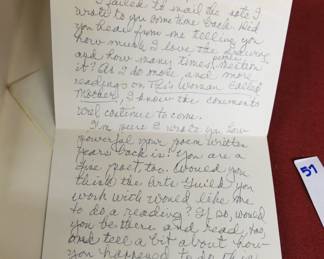 I failed to mail the note I
wrote to you some time back. Did
you hear from me telling you
how much I love the drawing
and how many times people mention
it? As I do more and more
readings on This Woman Called
Mother, I know the comments
will continue to come.
I'm sure I wrote you how
powerful your poem written
years back is! You are a
fine poet, too. Would you
think the Arts Guild you
work with would like me
to do a reading? If so, would
you be there and read, too,
and tell a bit about how
you happened to do the
57